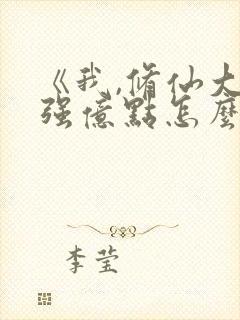 《我,脩仙大
强億點怎麼
李莹